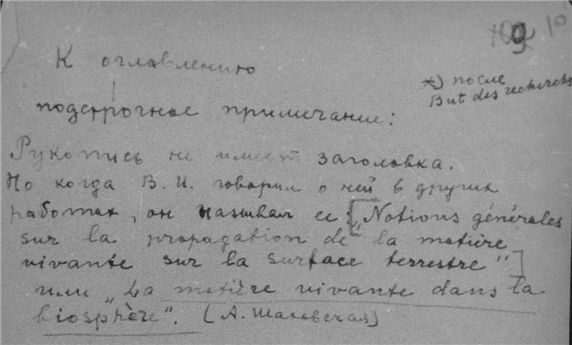 9 10
К оглавлению
*) после
But des recherches
подстрочное примечание:
Рукопись не имеет заголовка.
Но когда В. И. говорил о ней в других
работах, он называл ее [„Notions générales
sur la propagation de la matière
vivante sur la surface terrestre"]
или „La matière vivante dans la
biosphère". (А. Шаховская)